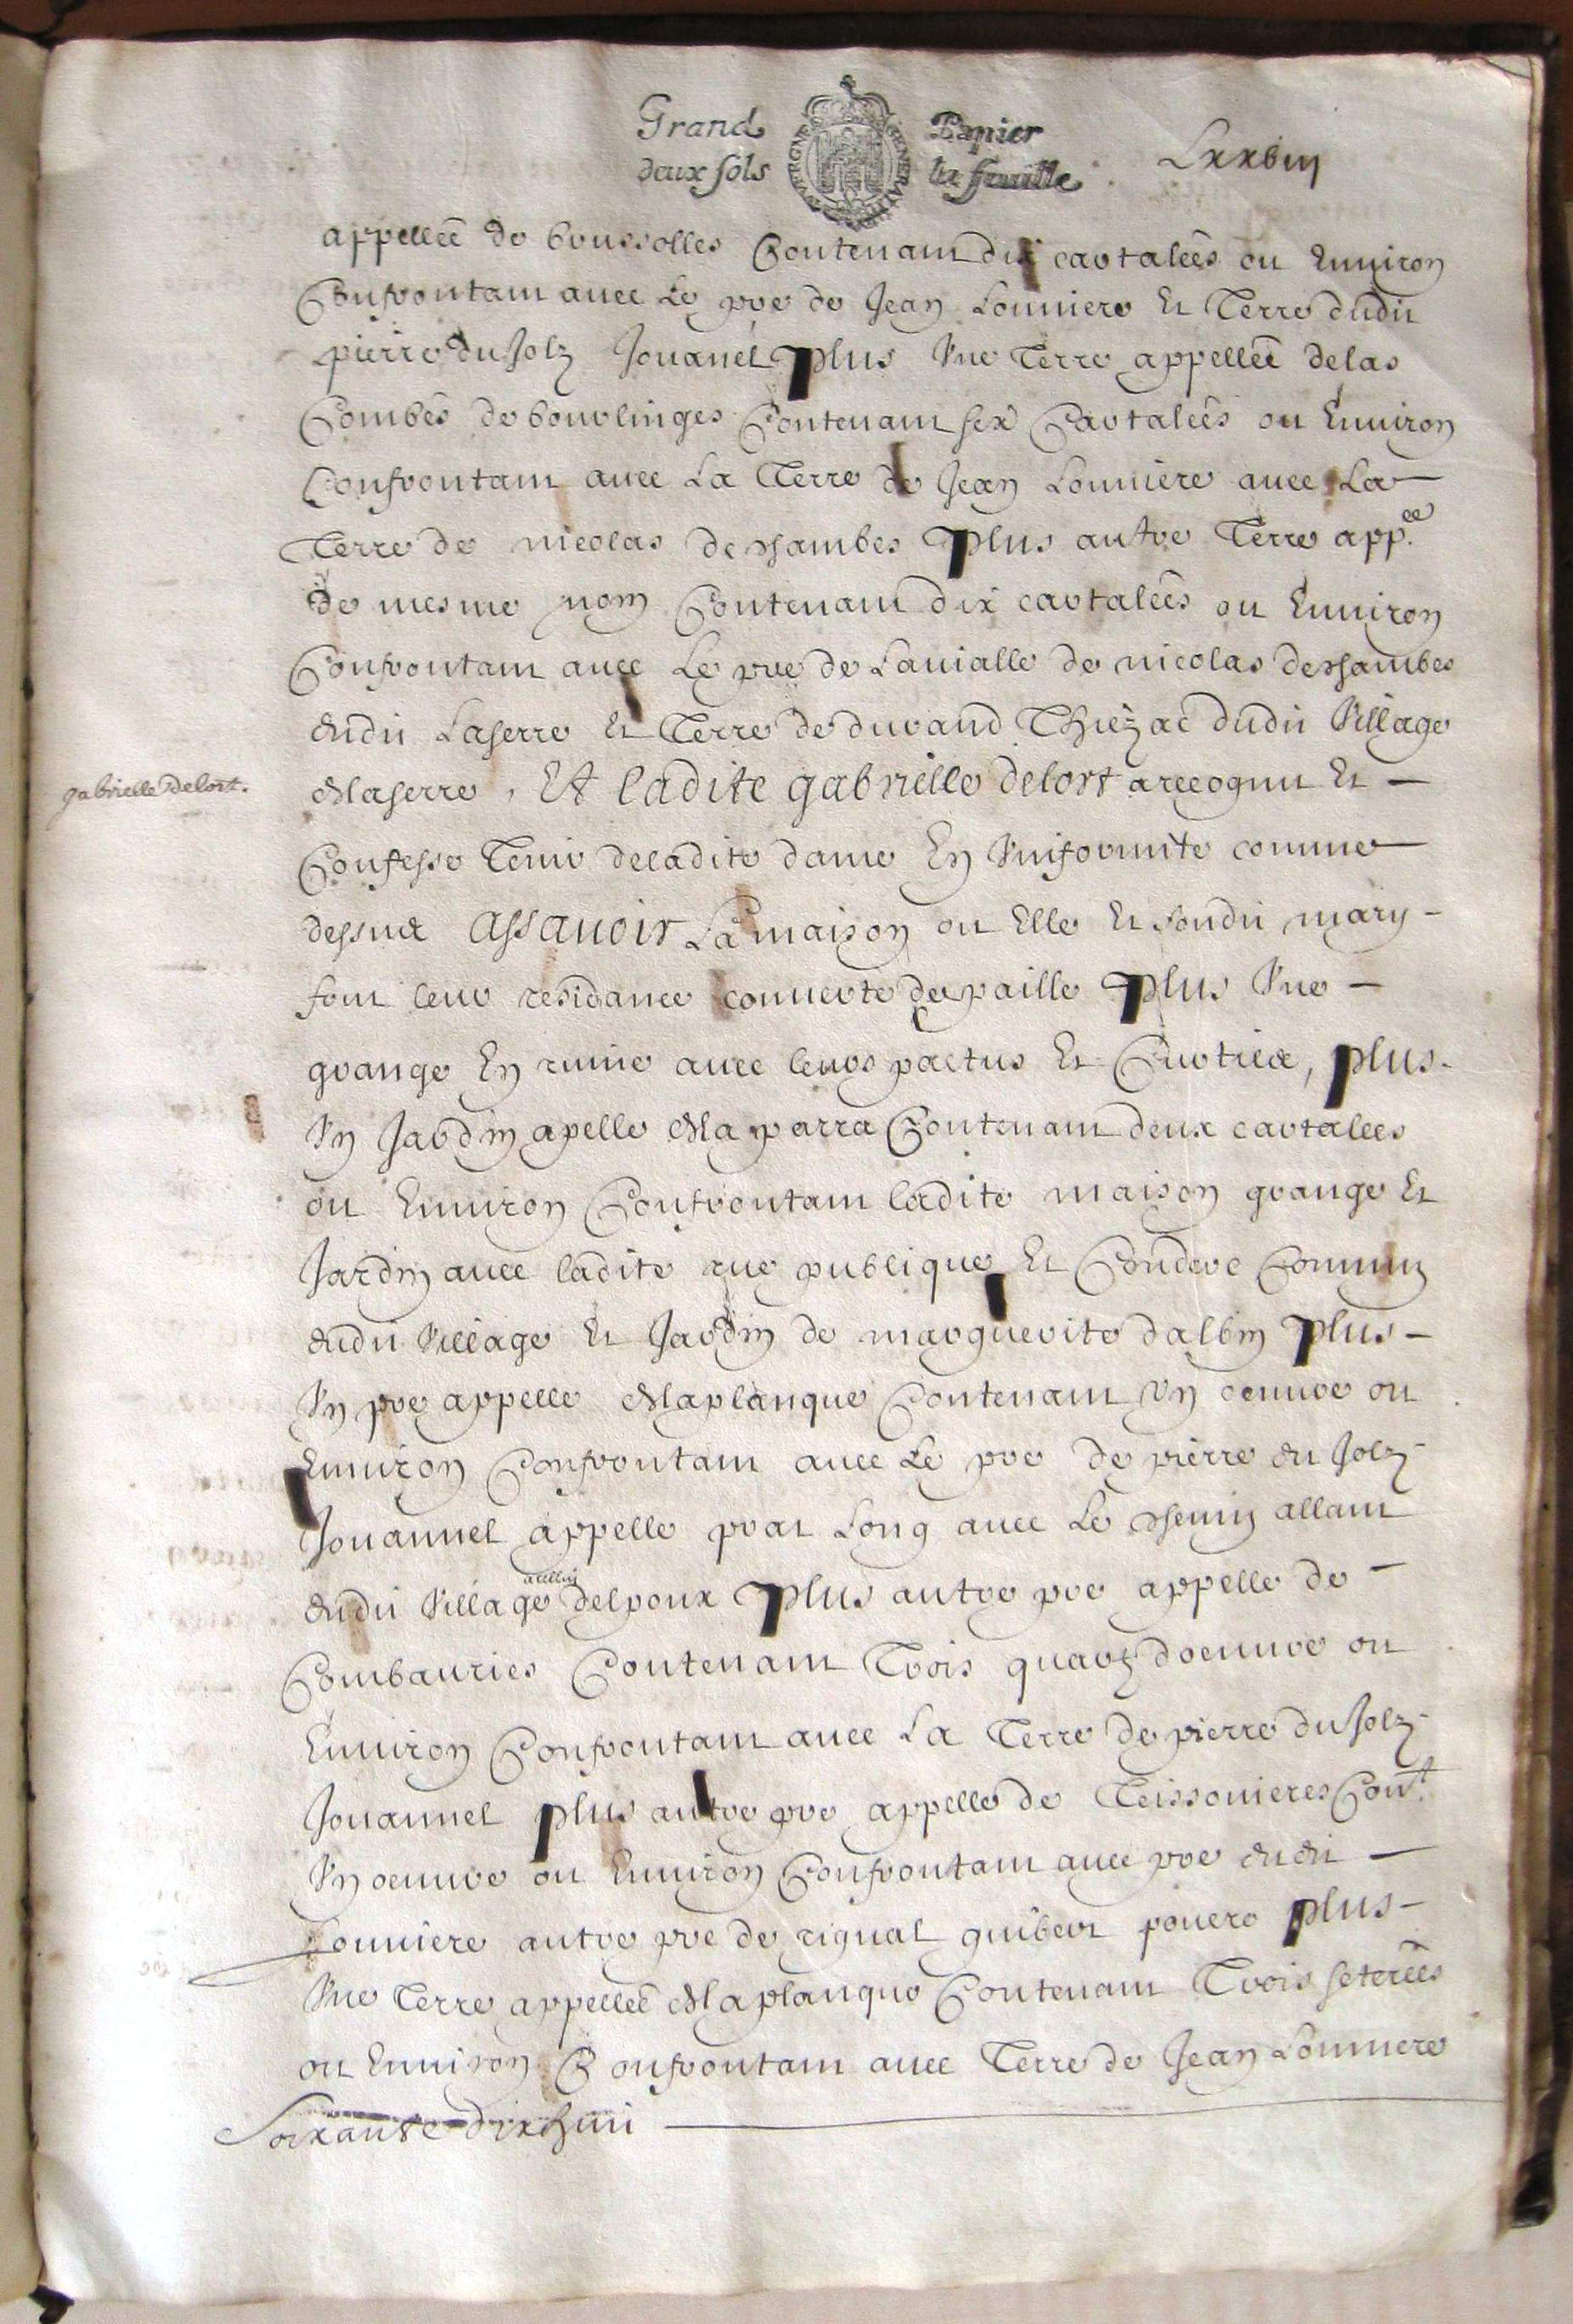 Grand Papier
deux sols la feuille
Lxxbiij
appellée de boussolles Contenant dix cartalées ou Environ
Confrontant avec Le pre de Jean Louuiere Et Terre dudit
pierre du Jolz Jouanel plus Vne Terre appellée de las
Combes de bourlinges Contenant six Cartalées ou Environ
Confrontant avec La Terre de Jean Louuiere avec La
Terre de nicolas deschambes plus autre Terre app.ee
de mesme nom Contenant dix cartalées ou Environ
Confrontant avec Le pre de Lavialle de nicolas deschambes
dudit Laserre Et Terre de durand Thiezac dudit Village
gabrielle delort.
de laserre, Et ladite gabrielle delort a recognu Et
Confesse Tenir de ladite dame En Vniformité comme
dessus assavoir La maison ou Elle Et sondit mary
font leur residance couverte de paille plus Vne
grange En ruine avec leurs pactus Et Curtils, plus
Vn Jardin apelle de la parra Contenant deux cartalees
ou Environ Confrontant ladite maison grange Et
Jardin avec ladite rue publique Et Couderc Commun
dudit Village Et Jardin de marguerite dalbin plus
Vn pre appelle de la planque Contenant Vn oeuvre ou
Environ Confrontant avec Le pre de pierre du Jolz
Jouannel appelle prat Long avec Le chemin allant
dudit Village delpoux plus autre pre appelle de
Combauries Contenant Trois quartz doeuvre ou
Environ Confrontant avec La Terre de pierre du Jolz
Jouannel plus autre pre appelle de Teissonieres Cont.
Vn oeuvre ou Environ Confrontant avec pre dudit
Louuiere autre pre de rignal guibert pouerc plus
Vne Terre appellée de la planque Contenant Trois seterées
ou Environ Confrontant avec Terre de Jean Louuiere
Soixante dixhuit